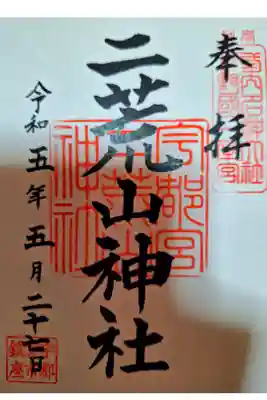 奉拝
二荒山神社
令和五年五月二十七日
宇都宮
二荒山
神社